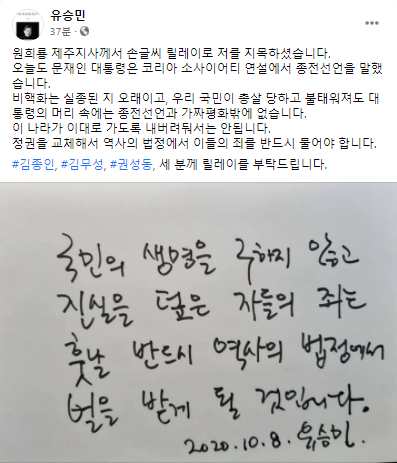 유승민
37분 ·
원희룡 제주지사께서 손글씨 릴레이로 저를 지목하셨습니다.
오늘도 문재인 대통령은 코리아 소사이어티 연설에서 종전선언을 말했
습니다.
비핵화는 실종된 지 오래이고, 우리 국민이 총살 당하고 불태워져도 대
통령의 머리 속에는 종전선언과 가짜평화밖에 없습니다.
이 나라가 이대로 가도록 내버려둬서는 안됩니다.
정권을 교체해서 역사의 법정에서 이들의 죄를 반드시 물어야 합니다.
#김종인, #김무성, #권성동, 세 분께 릴레이를 부탁드립니다.
국민의 생명을 구하지 않고
진실을 덮은 자들의 죄는
훗날 반드시 역사의 법정에서
벌을 받게 될 것입니다.
2020.10.8. 유승민